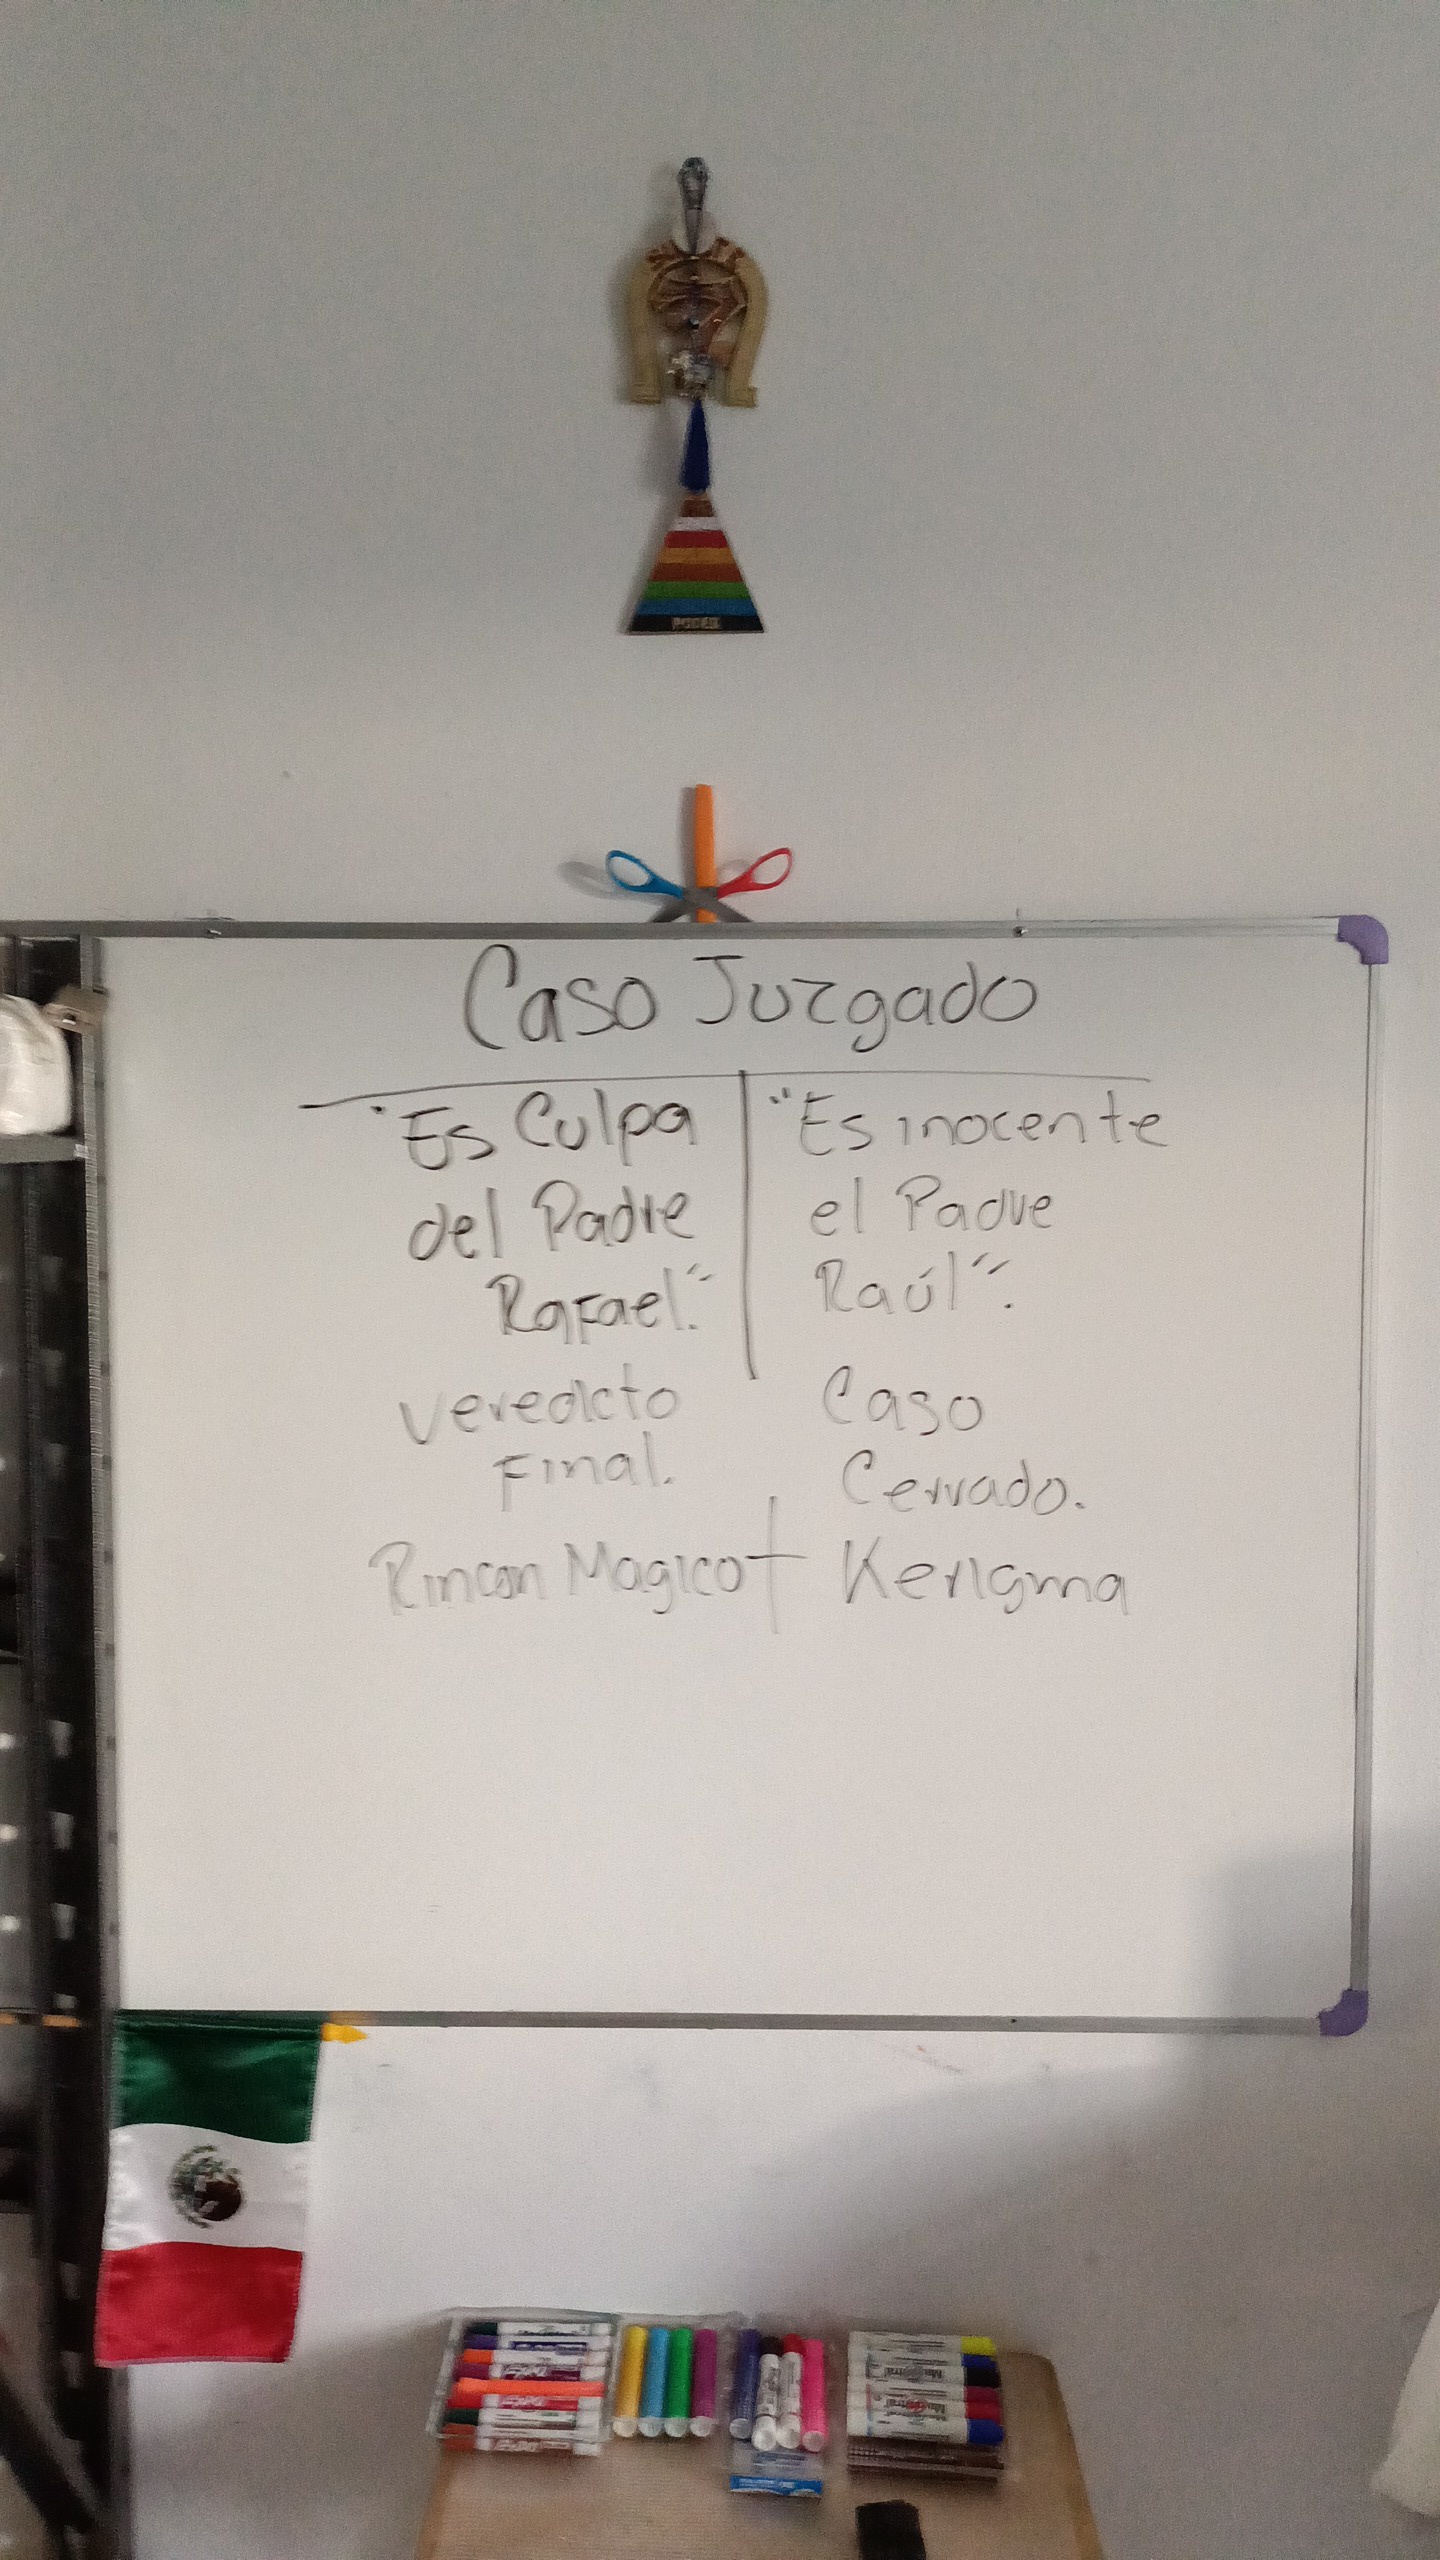 PODER
Caso Juzgado
"Es Culpa
del Padre
Rafael."
"Es inocente
el Padre
Raúl".
Veredicto
Final.
Caso
Cerrado.
Rincon Magico
Kerigma